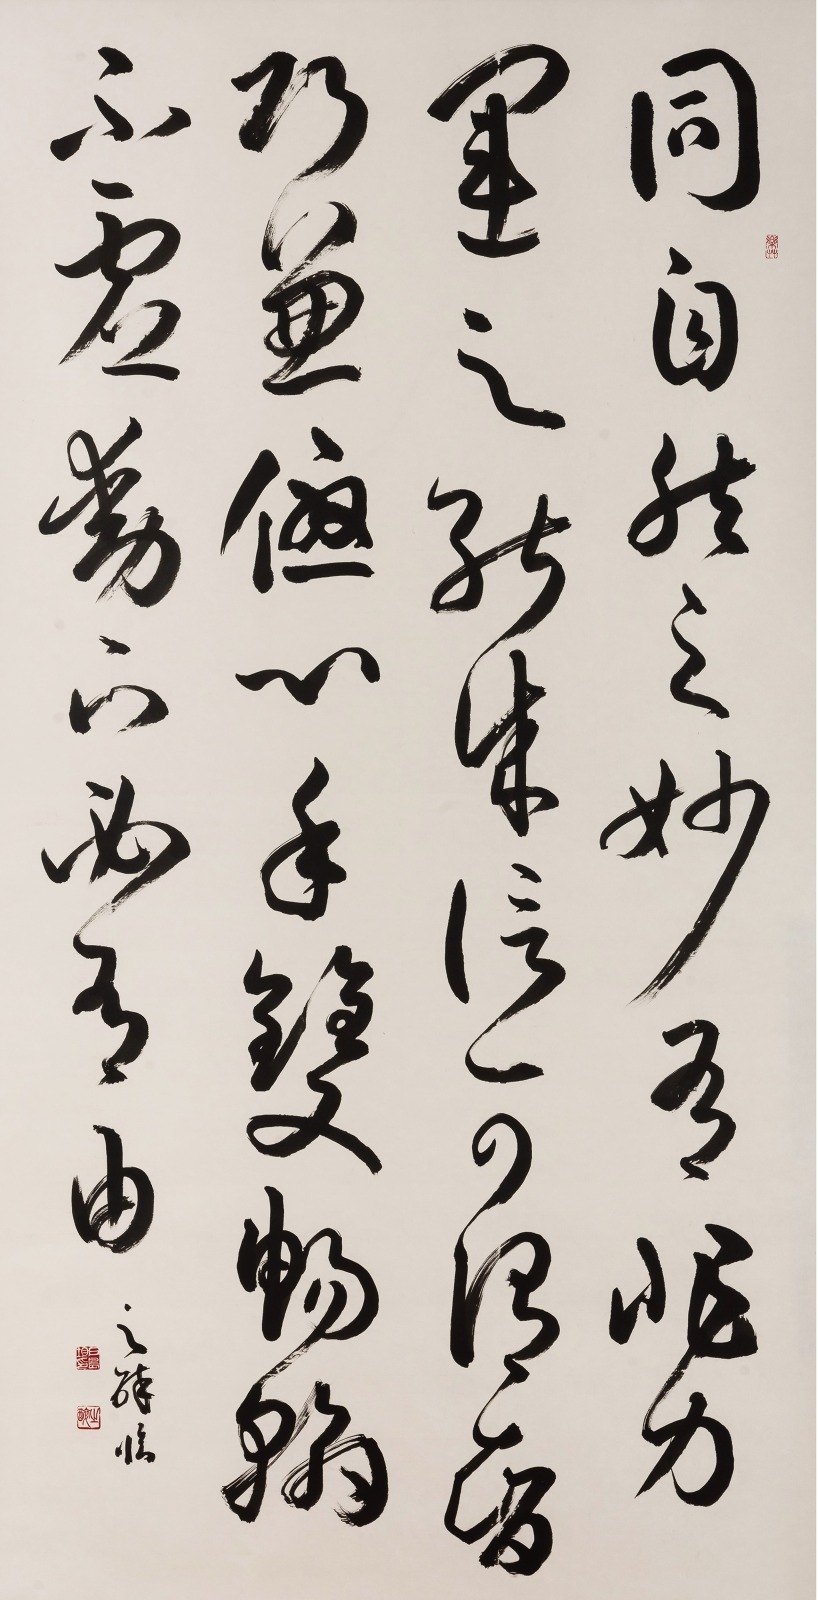 同自然之妙有非力
運之能成信可謂智
巧兼優心手雙暢翰
不虛動下必有由
之 臨